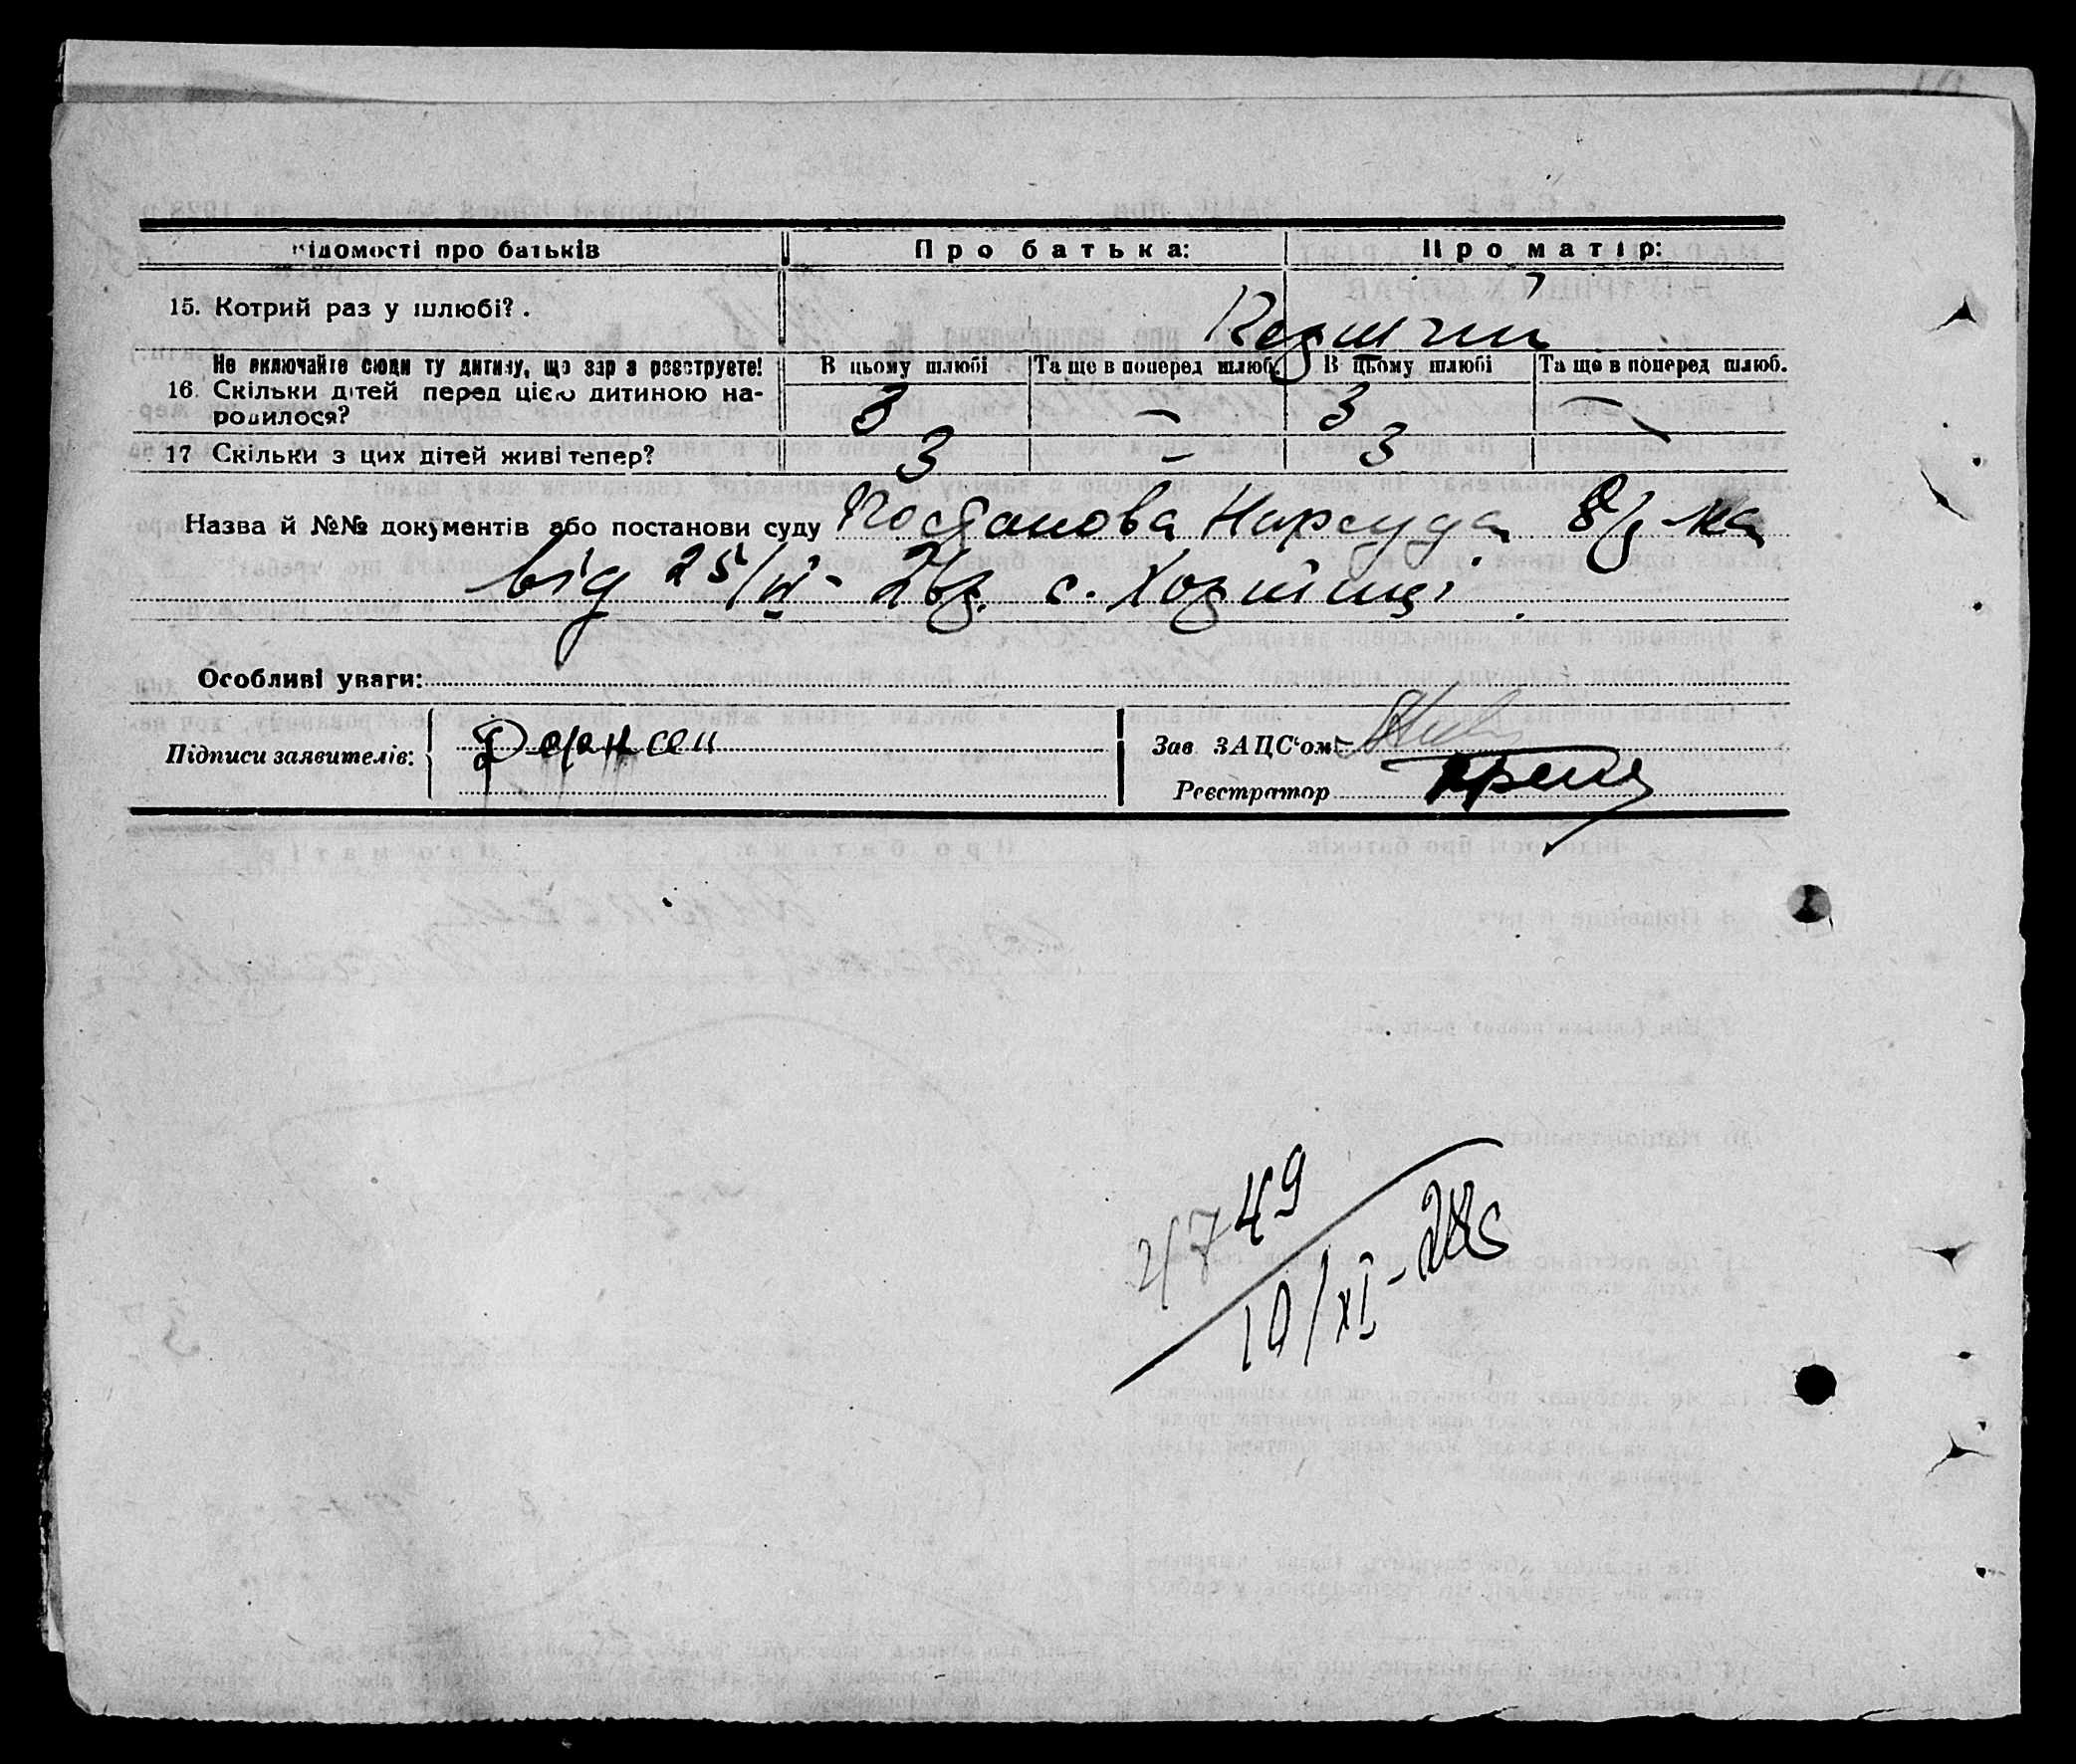 Відомості про батьків Про батька: Про матір:
15. Котрий раз у шлюбі? . Перший
Не включайте сюди ту дитину, що зар з реєструєте! В цьому шлюбі Та ще в поперед шлюб. В цьому шлюбі Та ще в поперед шлюб.
16. Скільки дітей перед цією дитиною на- 3 — 3 —
родилося?
17 Скільки з цих дітей живі тепер? 3 – 3 –
Назва й №№ документів або постанови суду Постанова Нарсуда
від 25/VI- с. Хортиці
Особливі уваги:
Підписи заявителів: Зав ЗАЦС'ом
Реєстратор
49
10/XI-28